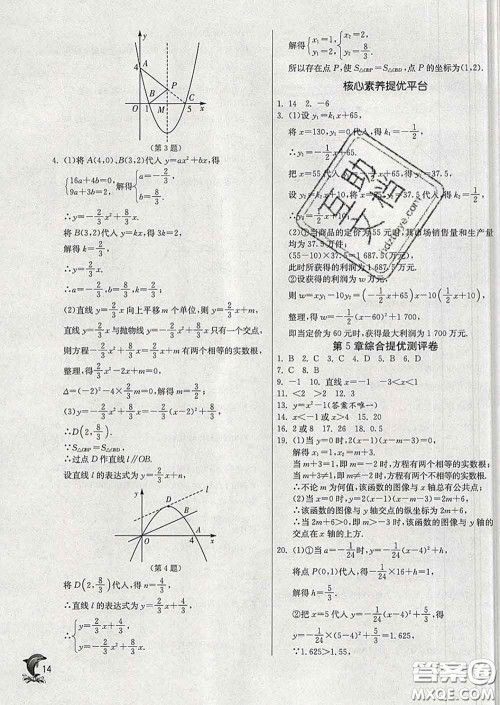 y
4
A
P
B
C
O
1
5
x
(第3题)
4. (1)将A(4,0),B(3,2)代入 y=ax²+bx,得
{16a+4b=0, 9a+3b=2, 解得{a=-2/3, b=8/3.
∴y=-2/3x²+8/3x.
将B(3,2)代入 y=kx,得 3k=2,
解得 k=2/3,∴y=2/3x.
∴a=-2/3,b=8/3,k=2/3.
(2)直线 y=2/3x 向上平移 m 个单位,则 y=2/3x+m,
直线 y=2/3x+m 与抛物线 y=-2/3x²+8/3x 只有一个交点,
则方程-2/3x²+8/3x=2/3x+m 有两个相等的实数根,
整理,得 2/3x²-2x+m=0,
Δ=(-2)²-4×2/3m=0,解得 m=3/2.
(3)y=-2/3x²+8/3x=-2/3(x-2)²+8/3,
∴D(2,8/3).
∵S△OBP=S△OBD,
∴过点 D 作直线 l∥OB.
设直线 l 的表达式为 y=2/3x+n,
y
D
l
B
A
O
4
x
(第4题)
将 D(2,8/3)代入,得 n=4/3,
∴直线 l 的表达式为 y=2/3x+4/3,
∴{y=2/3x+4/3, y=-2/3x²+8/3x,
14
解得{x₁=1, y₁=2, {x₂=2, y₂=8/3.
所以存在点 P,使 S△OBP=S△OBD,点 P 的坐标为(1,2).
核心素养提优平台
1. 14 2. -6
3. (1)设 y₁=k₁x+65,
将 x=130,y₁=0 代入,得
∴y₁=
(2)①当商品的定价为 55 元时,
均为 37.5 万件;
(55-10)×37.5=1 687.5(万元).
此时所获得的利润为 1 687.5 万元.
则 w=xy₁-10y₂=
整理,得 w=
即当定价为 60 元时,获得最大利润为 1 700 万元.
第 5 章综合提优测评卷
1. B 2. D 3. C 4. B 5. D 6. C
7. C 8. B
9. -1 10. 直线 x=-1 -3<x<1
11. <2 >2 12. 4
13. y=x²-1(答案不唯一)
14. x<-1 或 x>4 15. 20
16. 2或8 17. 26 18. 0
19. (1)当 y=0 时,2(x-1)(x-m-3)=0,
解得 x₁=1,x₂=m+3.
当 m+3=1,即 m=-2 时,方程有两个相等的实数根;
当 m+3≠1,即 m≠-2 时,方程有两个不相等的实数根.
∴不论 m 为何值,该函数的图像与 x 轴总有公共点;
(2)当 x=0 时,y=2(x-1)(x-m-3)=2m+6,
∴该函数的图像与 y 轴交点的纵坐标为 2m+6,
∴当 2m+6>0,即 m>-3 时,该函数的图像与 y 轴的交点在 x 轴的上方.
20. (1)①当 a=-1/24 时,y=-1/24(x-4)²+h,
将点 P(0,1)代入,得-1/24×16+h=1,
解得 h=5/3.
②把 x=5 代入 y=-1/24(x-4)²+5/3,得
y=-1/24×(5-4)²+5/3=1.625,
∵1.625>1.55,
互助文档
答案圈
MXQE.COM